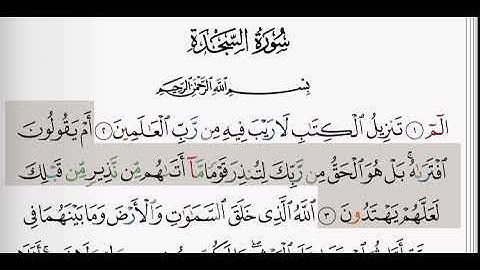 سُورَةُ السَّجْدَةِ
بِسْمِ اللَّهِ الرَّحْمَٰنِ الرَّحِيمِ
الٓمٓ ١ تَنزِيلُ الْكِتَٰبِ لَا رَيْبَ فِيهِ مِن رَّبِّ الْعَٰلَمِينَ ٢ أَمْ يَقُولُونَ
افْتَرَىٰهُ ۚ بَلْ هُوَ الْحَقُّ مِن رَّبِّكَ لِتُنذِرَ قَوْمًا مَّآ أَتَىٰهُم مِّن نَّذِيرٍ مِّن قَبْلِكَ
لَعَلَّهُمْ يَهْتَدُونَ ٣ اللَّهُ الَّذِي خَلَقَ السَّمَٰوَٰتِ وَالْأَرْضَ وَمَا بَيْنَهُمَا فِي